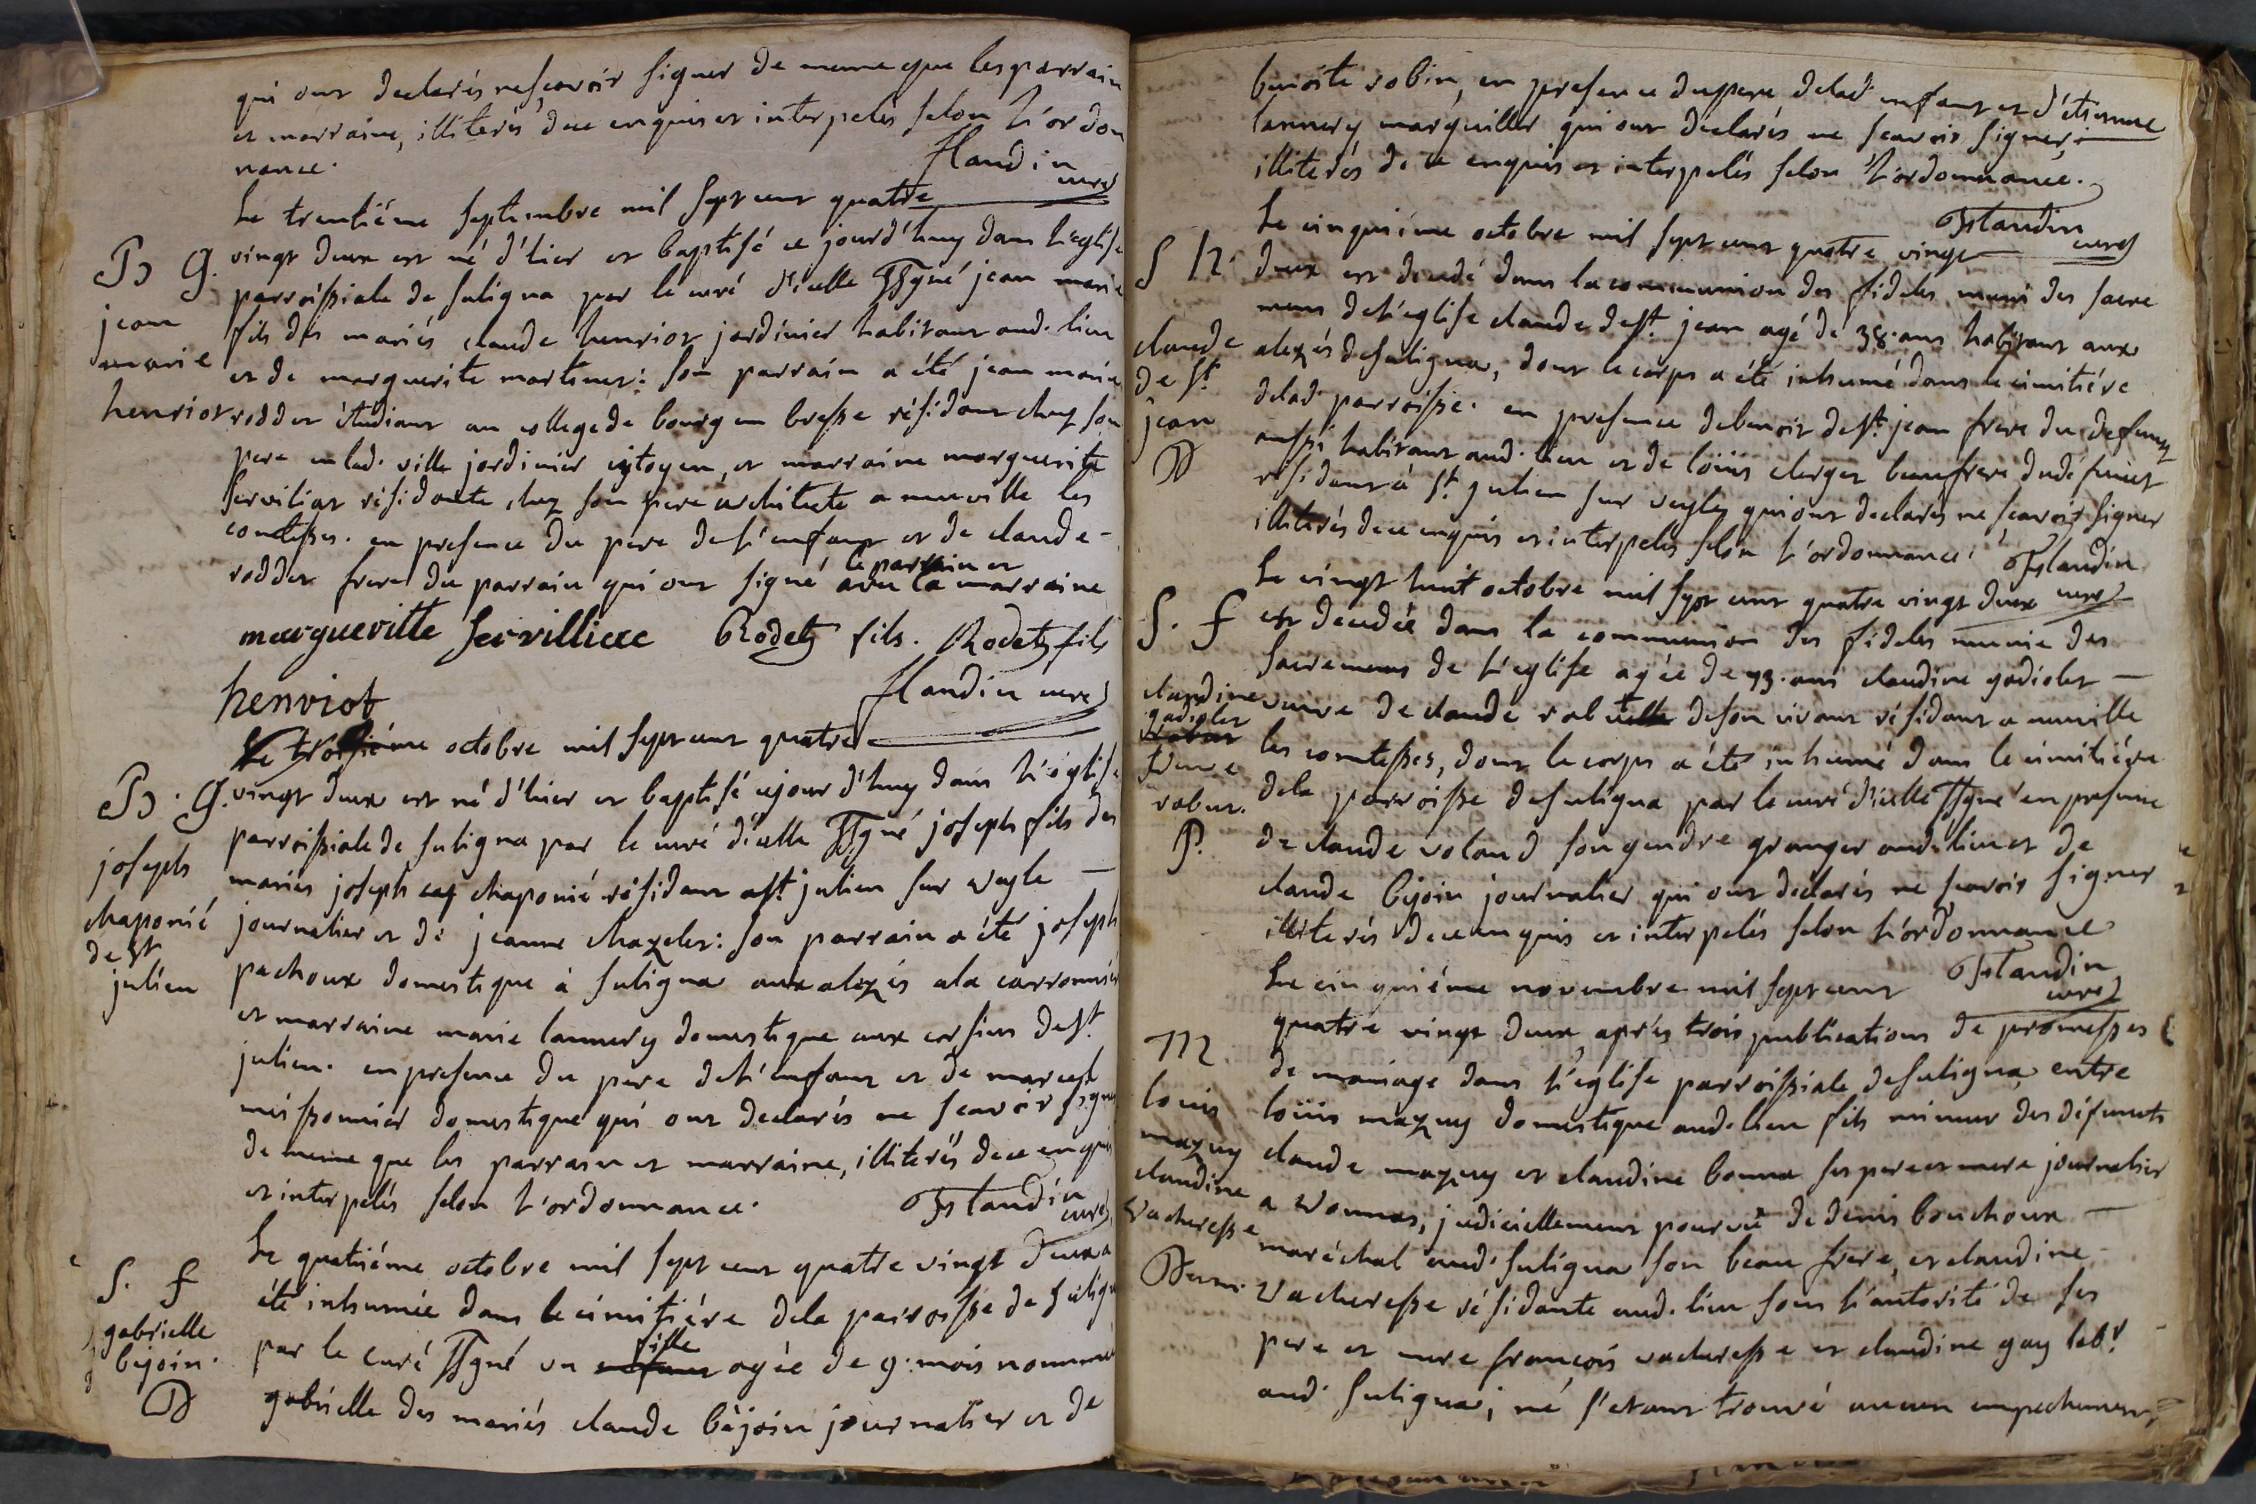 qui ont declarés ne sçavoir signer de meme que les parrain
et marraine, illiterés de ce enquis et interpelés selon l'ordon
nance.
flandin
curé
Le trentiéme septembre mil sept cent quatre
B G.
vingt deux est né d'hier et baptisé ce jourd'huy dans l'eglise
parroissiale de suligna par le curé d'icelle ssgné jean marie
jean
marie
henriot
fils des mariés claude henriot jardinier habitant aud. lieu
et de marguerite martinet: son parrain a été jean marie
roddet étudiant au college de bourg en bresse résidant chez son
pere en lad. ville jardinier cytoyen, et marraine marguerite
serviliat résidante chez son pere architecte a neuville les
comtesses. en presence du pere de l'enfant et de claude
le parrain et
roddet frere du parrain qui ont signé avec la marraine
margueritte servilliere Rodetz fils. Rodetz fils
henriot
flandin curé
Le troisiéme octobre mil sept cent quatre
B. G.
vingt deux est né d'hier et baptisé cejourd'huy dans l'église
parroissiale de suligna par le curé d'icelle ssgné joseph fils des
joseph
chaponié
de st
julien
mariés joseph chaponié résidant a st. julien sur veyle
journalier et de jeanne chazelet: son parrain a été joseph
pachoux domestique à suligna aux alezés a la carronnié
et marraine marie lannery domestique aux corsins de st.
julien. en presence du pere de l'enfant et de
meissonnier domestique qui ont declarés ne scavoir signer
de meme que les parrain et marraine, illiterés de ce enquis
et interpelés selon l'ordonnance.
flandin
curé
Le quatriéme octobre mil sept cent quatre vingt deux a
S. f
gabrielle
béjoin.
été inhumée dans le cimitiére de la parroisse de suligna
fille
par le curé ssgné un enfant agée de 9. mois nommée
gabrielle des mariés claude béjoin journalier et de
benoite robin, en presence du pere de lad. enfant et d'étienne
lannery marguiller qui ont déclarés ne scavoir signer,
illiterés de ce enquis et interpelés selon l'ordonnance.
flandin
curé
Le cinquiéme octobre mil sept cent quatre vingt
S h.
deux est decedé dans la communion des fideles muni des sacre
mens de l'eglise claude de st. jean agé de 38. ans habitant aux
claude
de st.
jean
alezés de suligna, dont le corps a été inhumé dans le cimitiére
de lad. parroisse. en presence de benoit de st. jean frere du defunt
aussi habitant aud. lieu et de loüis clerget beaufrere dud. defunct
résidant à st. julien sur veyle, qui ont declarés ne sçavoir signer
illiterés de ce enquis et interpelés selon l'ordonnance.
flandin
curé
Le vingt huit octobre mil sept cent quatre vingt deux
S. f
est decedée dans la communion des fideles munie des
sacremens de l'eglise agée de 73. ans claudine gadiolet
claudine
gadiolet
femme
robut.
veuve de claude robut de son vivant résidant a neuville
les comtesses, dont le corps a été inhumé dans le cimitiére
de la parroisse de suligna par le curé d'icelle ssgné en presence
P.
de claude voland son gendre granger aud. lieu et de
claude béjoin journalier qui ont declarés ne scavoir signer
illiterés de ce enquis et interpelés selon l'ordonnance
flandin
curé
Le cinquiéme novembre mil sept cent
quatre vingt deux, aprés trois publications de promesses
M.
de mariage dans l'église parroissiale de suligna entre
louis
mazuy
claudine
vacheresse
loüis mazuy domestique aud. lieu fils mineur des défuncts
claude mazuy et claudine bonna ses pere et mere journalier
a vonnas, judiciellement pourvû de denis bouchoux
maréchal aud. suligna son beau frere, et claudine
vacheresse résidante aud. lieu sous l'autorité de ses
pere et mere françois vacheresse et claudine gay lab.r
aud. suligna; né s'etant trouvé aucun empechement,